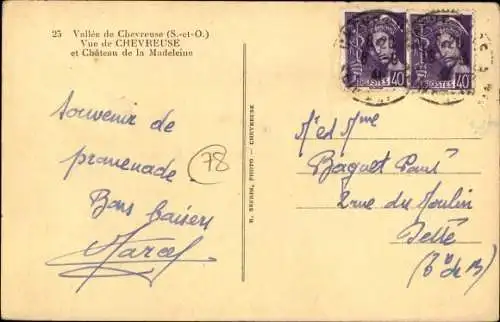 25 Vallée de Chevreuse (S.-et-O.)
Vue de CHEVREUSE
et Château de la Madeleine
Souvenir de
promenade
Bons baisers
Marcel
78
PHOTO - CHEVREUSE
POSTES 40
POSTES 40
M et Mme
Baguet Paul
2 rue du Moulin
(B du R)